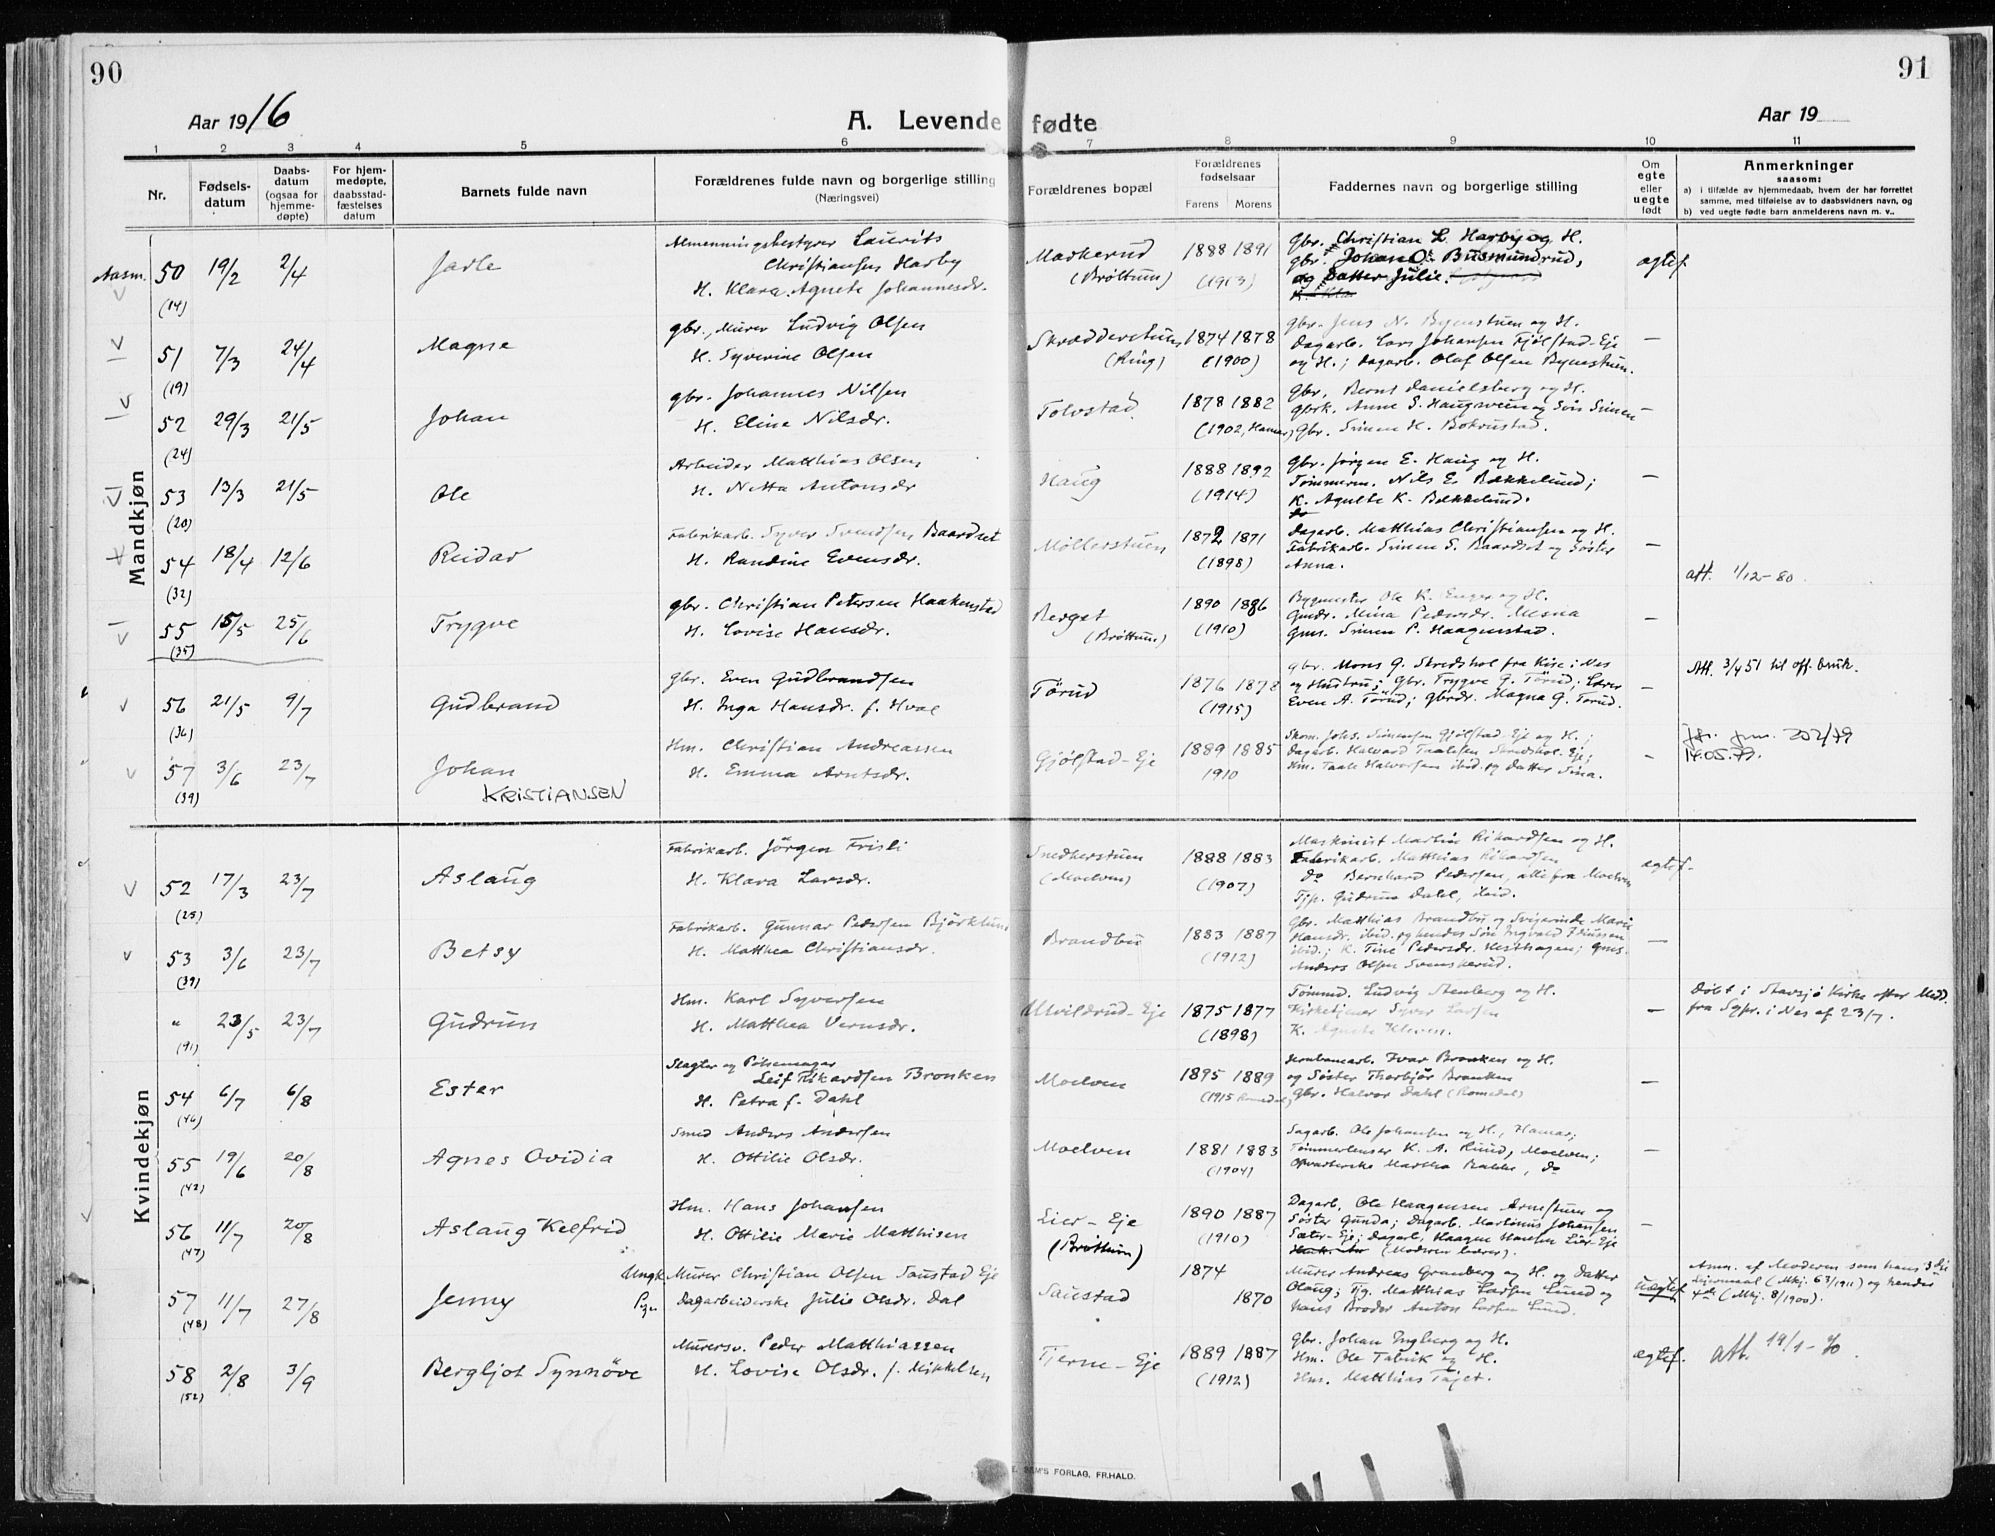 90
91
Aar 1916
A. Levende fødte
Aar 19
1 2 3 4 5 6 7 8 9 10 11
Nr.
Fødsels-
datum
Daabs-
datum
(ogsaa for
hjemme-
døpte)
For hjem-
medøpte,
daabsstad-
fæstelses
datum
Barnets fulde navn
Forældrenes fulde navn og borgerlige stilling
(Næringsvei)
Forældrenes bopæl
Forældrenes
fødselsaar
Farens Morens
Faddernes navn og borgerlige stilling
Om
egte
eller
uegte
født
Anmerkninger
saasom:
a) i tilfælde av hjemmedaab, hvem der har forrettet
samme, med tilføielse av to daabsvidners navn, og
b) ved uegte fødte barn anmelderens navn m. v..
Mandkjøn
Aasm. 50 (14) 19/2 2/4 Jarle
Almenningsbestyrer Laurits
Christiansen Harby
H. Klara Agnete Johannesdr.
(Brøttum)
1888 1891
(1913)
gbr. Christian L. Harby og H.
gbr. Johan O. Busmundrud,
og Datter Julie.
ægtef.
51 (19) 7/3 24/4 Magne
gbr., Murer Ludvig Olsen
H. Syverine Olsen
Skrædderstuen
(Ring)
1874 1878
(1900)
gbr. Jens N. Byenstuen og H.
Dagarb. Lars Johansen Fjølstad-Eje
og H.; Dagarb. Olaf Olsen Byenstuen.
—
52 (24) 29/3 21/5 Johan
gbr. Johannes Nilsen
H. Eline Nilsdr.
Tolvstad
1878 1882
(1902, Hamar)
gbr. Bernt Danielsberg og H.
gbrk. Anne S. Haugsveen og Søn Simen
gbr. Simen H. Botnustad.
—
53 (20) 13/3 21/5 Ole
Arbeider Matthias Olsen
H. Netta Antonsdr
Haug
1888 1892
(1914)
gbr. Jørgen E. Haug og H.
Tømmerm. Nils E. Bækkelund;
K. Agnethe K. Bækkelund.
—
54 (32) 18/4 12/6 Reidar
Fabrikarb. Syver Svendsen Baardset
H. Randine Evensdr.
Møllerstuen
1872 1871
(1898)
Dagarb. Matthias Christiansen og H.
Fabrikarb. Simen S. Baardset og Søster
Anna.
—
att. 1/12-80
55 (35) 15/5 25/6 Trygve
gbr. Christian Petersen Haakenstad
H. Lovise Hansdr.
Berget
(Brøttum)
1890 1886
(1910)
Bygmester Ole K. Enger og H.
Gmdr. Mina Pedersdr. Mesna
Gms. Simen P. Haagenstad.
—
56 (36) 21/5 9/7 Gudbrand
gbr. Even Gudbrandsen
H. Inga Hansdr. f. Hval
Tørud
1876 1878
(1915)
gbr. Mons G. Skredshol fra Kise i Nes
og Hustru; gbr. Trygve G. Tørud; Lærer
Even A. Tørud; gbrdr. Magna G. Tørud.
—
Att. 3/4 51 til off. bruk.
57 (39) 3/6 23/7 Johan
KRISTIANSEN
Hm. Christian Andreassen
H. Emma Arntsdr.
Gjølstad-Eje
1889 1885
1910
Skom. Johs. Simensen Gjølstad-Eje og H.;
Dagarb. Halvard Taalesen Eje;
Hm. Taale Halvorsen ibid. og Datter Sina.
-
202/79
14.05.79.
Kvindekjøn
52 (25) 17/3 23/7 Aslaug
Fabrikarb. Jörgen Frisli
H. Klara Larsdr.
Snedkerstuen
(Moelven)
1888 1883
(1907)
Maskinist Martin Rikardsen og H.
Fabrikarb. Matthias Rikardsen
do Bernhard Pedersen, alle fra Moelven
Tjp. Gudrun Dahl, ibid.
ægtef.
53 (39) 3/6 23/7 Betsy
Fabrikarb. Gunnar Pedersen Björklund
H. Matthea Christiansdr.
Brandbu
1883 1887
(1912)
Gbr. Matthias Brandbu og Svigerinde Marie
Hansdr. ibid. og hendes Søn Ingvald
ibid.; K. Tine Pedersdr. Hesthagen; gms.
Anders Olsen Svenskerud.
—
" (91) 23/5 23/7 Gudrun
Hm. Karl Syversen
H. Matthea Vernsdr.
-Eje
1875 1877
(1898)
Tømmd. Ludvig Stenberg og H.
Kirketjener Syver Larsen
K. Agnete Kleven.
—
Døbt i Stavsjø Kirke efter Medd.
fra Sgpr. i Nes af 23/7.
54 (46) 6/7 6/8 Ester
Slagter og Pølsemager
Leif Rikardsen Bronken
H. Petra f. Dahl
Moelven
1895 1889
(1915 Romedal)
Ivar Bronken og H.
og Søster Thorbjør Bronken
gbr. Halvor Dahl (Romedal)
—
55 (42) 19/6 20/8 Agnes Ovidia
Smed Anders Andersen
H. Ottilie Olsdr.
Moelven
1881 1883
(1904)
Sagarb. Ole Johansen og H., Hamar;
Tømmerlenser K. A. Hund, Moelven;
Martha Bakke, do
—
56 (47) 11/7 20/8 Aslaug Kelfrid
Hm. Hans Johansen
H. Ottilie Marie Matthisen
Lier-Eje
(Brøttum)
1890 1887
(1910)
Dagarb. Ole Haagensen Arnestuen og
Søster Gunda; Dagarb. Martinus Johansen
Sæter-Eje; Dagarb. Haagen Hansen Lier-Eje
(Moderen bærer).
—
57 (48) 11/7 27/8 Jenny
Ungk. Murer Christian Olsen Saustad Eje
Pige Dagarbeiderske Julie Olsdr. Dal
Saustad
1874
1870
Murer Andreas Granberg og H. og Datter
Olaug; Tjg. Matthias Larsen Lund og
hans Broder Anton Larsen Lund.
uægtef
Anm. af Moderen som hans 3die
Leiermaal (Mkj. 63/1911) og hendes
4de (Mkj. 8/1900).
58 (52) 2/8 3/9 Bergljot Synnöve
Murersv. Peder Matthiassen
H. Lovise Olsdr. f. Mikkelsen
Tjerne-Eje
1889 1887
(1912)
gbr. Johan Ingberg og H.
Hm. Ole Fabrik og H.
Hm. Matthias Tajet.
ægtef.
att.
'S FORLAG, FR.HALD.